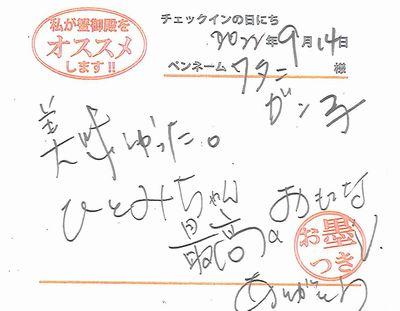 私が蟹御殿を
オススメ
します!!
チェックインの日にち
2022年9月14日
ペンネーム ワタニ
ガン子 様
美味かった。
ひとみちゃん
最高のおもてなし
ありがとう
お墨
つき